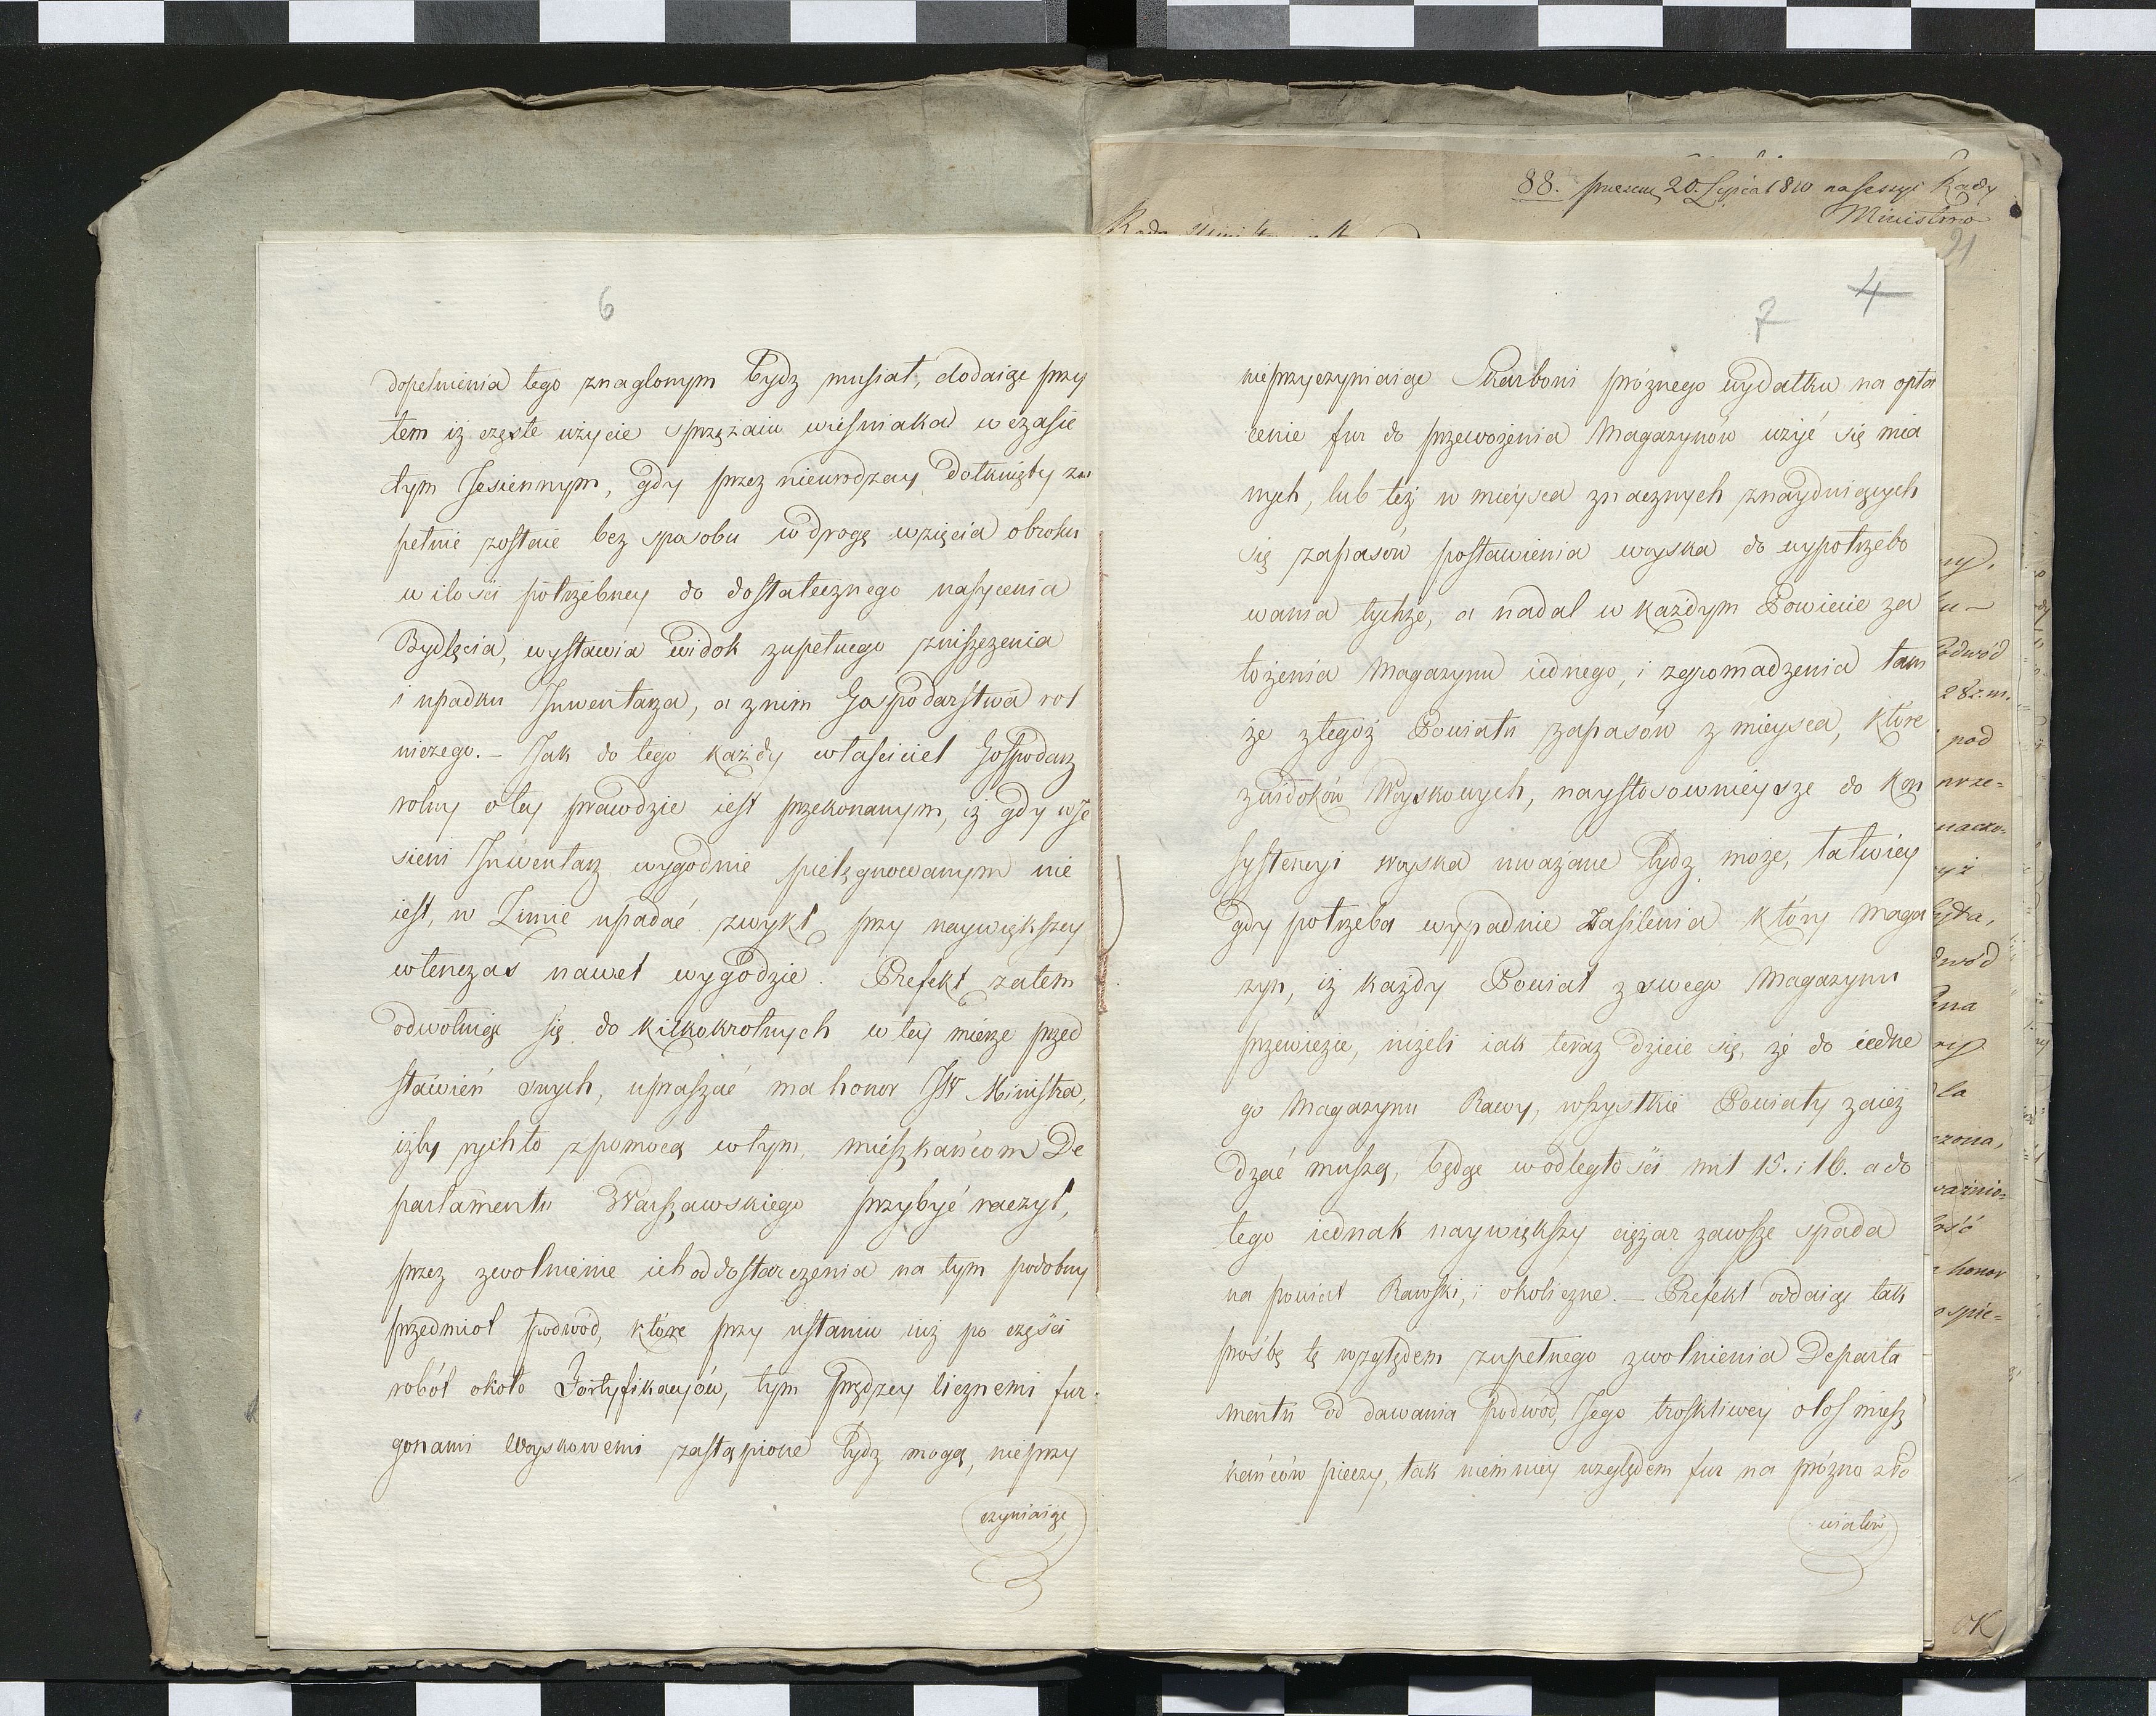 88. 20. Lipca 1810 na Sessyi Rady
Ministrow
21
6
dopełnienia tego znaglonym bydz musiał, dodaiąc przy
tem iż częste użycie sprzężaiu wieśniaka w czasie
tym Jesiennym, gdy przez nieurodzay dotknięty zu
pełnie zostaie bez sposobu w drogę wzięcia obroku
w ilości potrzebney do dostatecznego nasycenia
Bydlęcia, wystawia widok zupełnego zniszczenia
i upadku Inwentarza, a z nim Gospodarstwa rol
niczego. – Jak do tego każdy właściciel Gospodarz
rolny o tey prawdzie iest przekonanym, iż gdy w Je
sieni Inwentarz wygodnie pielęgnowanym nie
iest, w Zimie upadać zwykł przy naywiększey
wtenczas nawet wygodzie. Prefekt zatem
odwołuiąc się do kilkokrotnych w tey mierze przed
stawień swych, upraszać ma honor JW Ministra,
iżby rychło z pomocą w tym, mieszkańcom De
partamentu Warszawskiego przybyć raczył,
przez zwolnienie ich od dostarczenia na tym podobny
przedmiot podwod, które przy ustaniu iuż po części
robót około Fortyfikacyów, tym prędzey licznemi fur-
gonami Woyskowemi zastąpione bydz mogą, nieprzy
czyniaiąc
7 4
nieprzyczyniaiąc Skarbowi próznego wydatku na opła
cenie fur do przewożenia Magazynów użyć się mia
nych, lub też w mieysca znacznych znayduiących
się zapasów postawienia woyska do wypotrzebo
wania tychże, a nadal w każdym Powiecie za
łożenia Magazynu iednego, i zgromadzenia tam
że z tegoż Powiatu zapasów z mieysca, które
z widoków Woyskowych, naystosownieysze do kon
systencyi woyska uwazane bydz może, łatwiey
gdy potrzeba wypadnie Zasilenia który Maga
zyn, iż każdy Powiat z swego Magazynu
przewiezie, niżeli iak teraz dzieie się, że do iedne
go Magazynu Rawy, wszystkie Powiaty zaież
dzać muszą, będąc w odległości mil 15. i 16. a do
tego iednak naywiększy ciężar zawsze spada
na powiat Rawski, i okoliczne. – Prefekt oddaiąc tak
prośbę tę względem zupełnego zwolnienia Departa
mentu od dawania podwód, Jego troskliwey o los miesz
kańców pieczy, tak niemniey względem fur na prózno